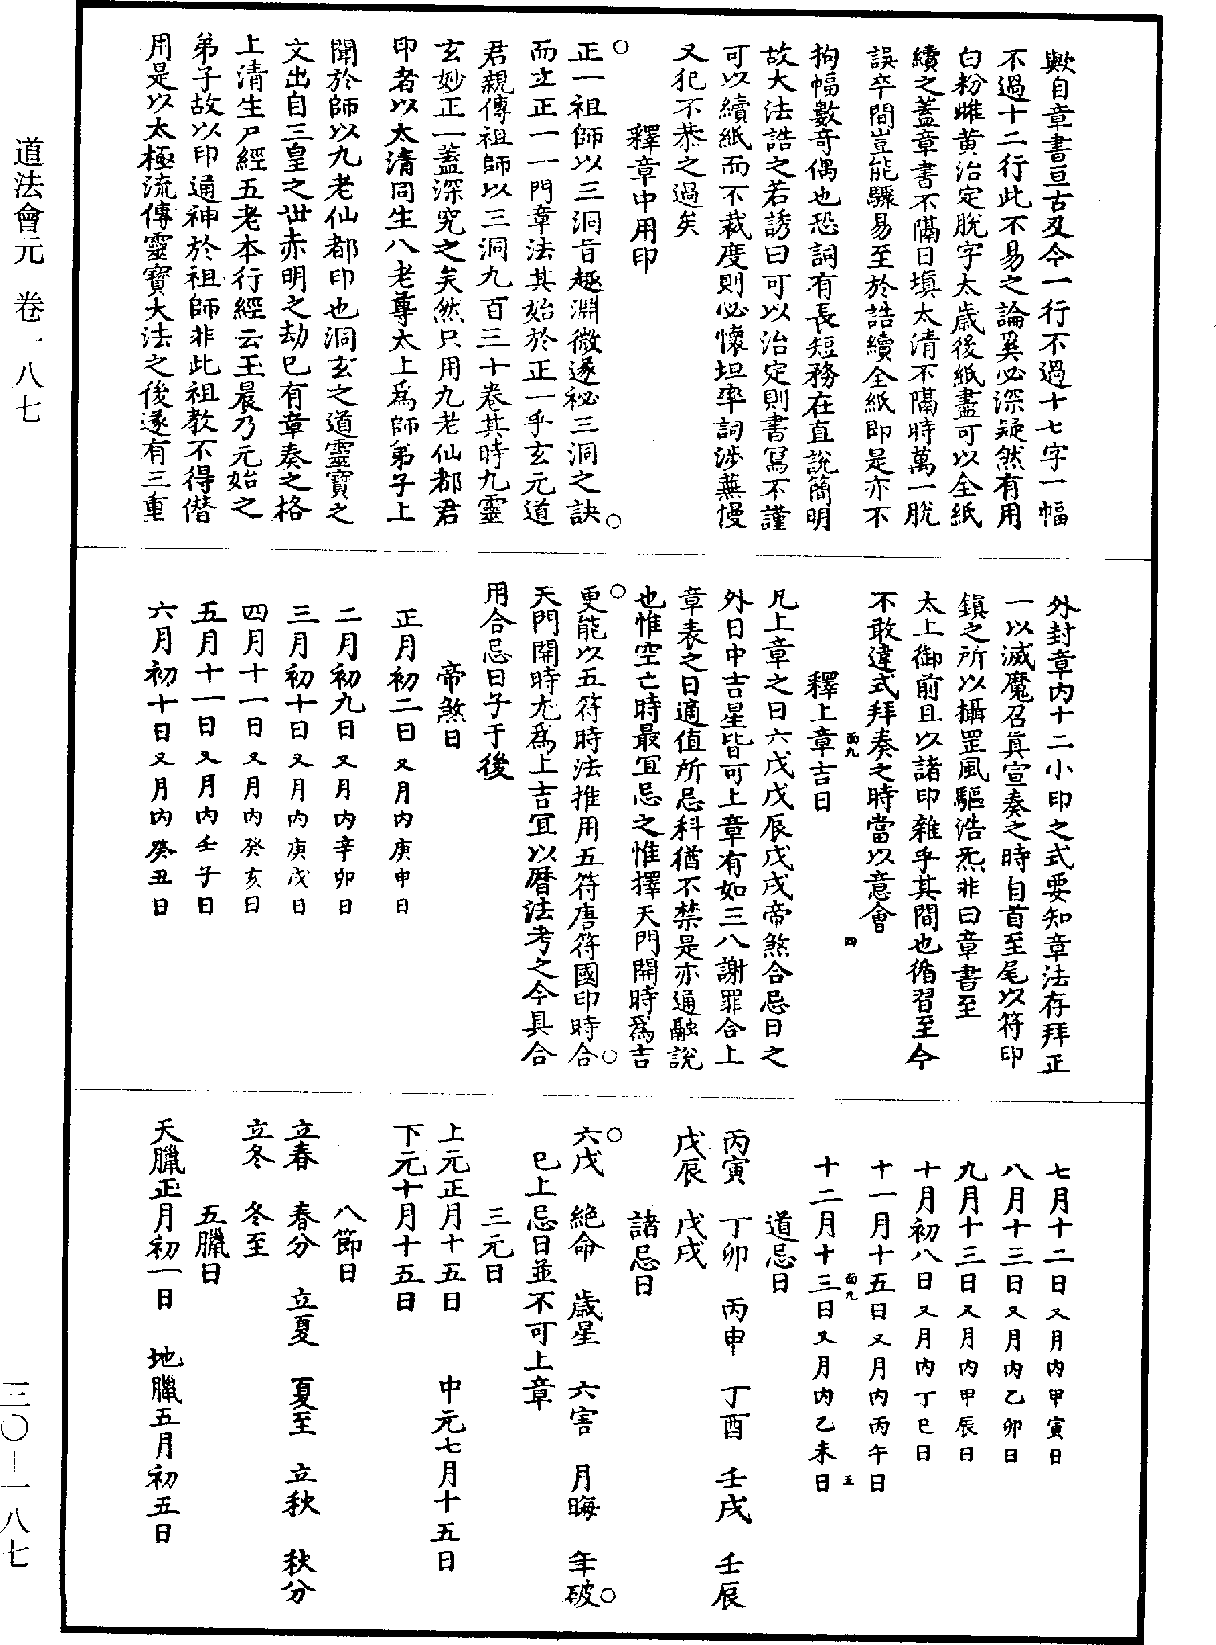 歟自章書亘古及今一行不過十七字一幅
不過十二行此不易之論奚必深疑然有用
白粉雌黄治定脫字太歲後紙盡可以全紙
續之蓋章書不隔日塡太清不隔時萬一脫
誤卒間豈能驟易至於誥續全紙即是亦不
拘幅數奇偶也恐詞有長短務在直說簡明
故大法誥之若誘曰可以治定則書冩不謹
可以續紙而不裁度則必懷坦率詞涉蕪慢
又犯不恭之過矣
釋章中用印
○正一祖師以三洞旨趣淵微遂祕三洞之訣○
而立正一一門章法其始於正一乎玄元道
君親傳祖師以三洞九百三十卷其時九靈
玄妙正一蓋深究之矣然只用九老仙都君
印者以太清同生八老尊太上爲師弟子上
聞於師以九老仙都印也洞玄之道靈寶之
文出自三皇之世赤明之劫已有章奏之格
上清生尸經五老本行經云玉晨乃元始之
弟子故以印通神於祖師非此祖教不得僭
用是以太極流傳靈寶大法之後遂有三重
外封章內十二小印之式要知章法存拜正
一以滅魔召眞宣奏之時自首至尾以符印
鎮之所以攝罡風驅浩炁非曰章書至
太上御前且以諸印雜乎其間也循習至今
不敢違式拜奏之時當以意會
面九 四
釋上章吉日
凡上章之日六戊戊辰戊戌帝煞合忌日之
外日中吉星皆可上章有如三八謝罪合上
章表之日適值所忌科猶不禁是亦通融說
也惟空亡時最宜忌之惟擇天門開時爲吉
○更能以五符時法推用五符唐符國印時合○
天門開時尤爲上吉宜以曆法考之今具合
用合忌日子于後
帝煞日
正月初二日又月內庚申日
二月初九日又月內辛卯日
三月初十日又月內庚戌日
四月十一日又月內癸亥日
五月十一日又月內壬子日
六月初十日又月內癸丑日
七月十二日又月內甲寅日
八月十三日又月內乙卯日
九月十三日又月內甲辰日
十月初八日又月內丁巳日
十一月十五日又月內丙午日
面九 五
十二月十三日又月內乙未日
道忌日
丙寅 丁卯 丙申 丁酉 壬戌 壬辰
戊辰 戊戌
諸忌日
○六戊 絕命 歲星 六害 月晦 年破○
已上忌日並不可上章
三元日
上元正月十五日 中元七月十五日
下元十月十五日
八節日
立春 春分 立夏 夏至 立秋 秋分
立冬 冬至
五臘日
天臘正月初一日 地臘五月初五日
道法會元 卷一八七
三〇—一八七